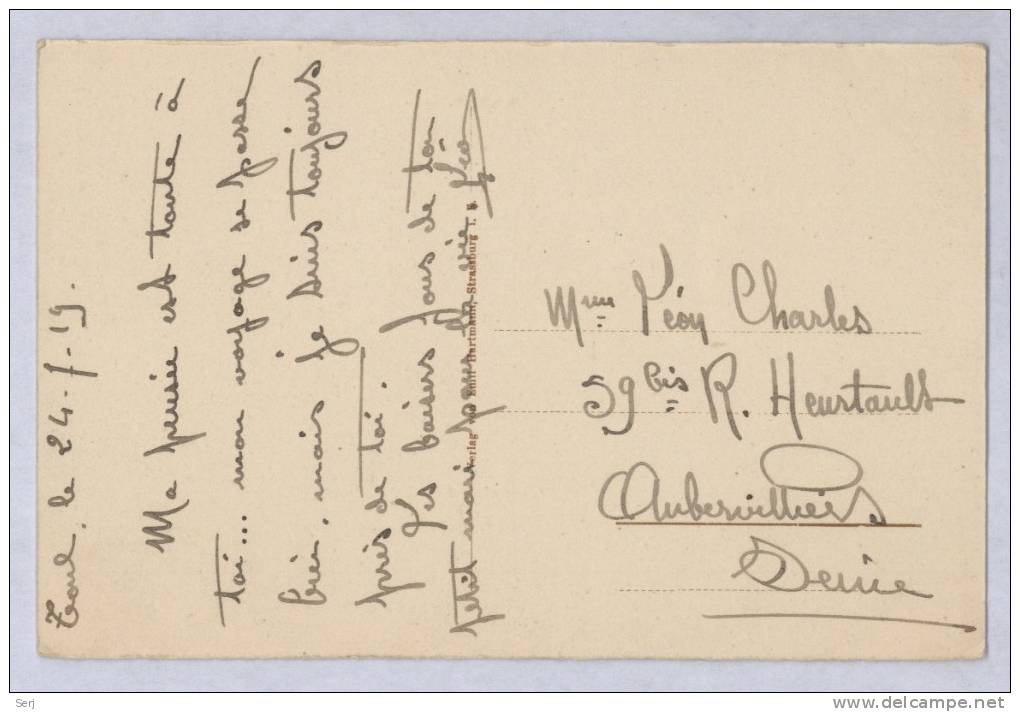 Toul. le 24-7-19.
Ma pensée est toute à
toi... mon voyage se passe
bien, mais je suis toujours
près de toi.
Les baisers fous de ton
petit mari pour la vie Léon
Verlag von Emil Hartmann, Strassburg i. E.
Mme Léon Charles
59 bis R. Heurtault
Aubervilliers
Seine
Serj
delcampe.net